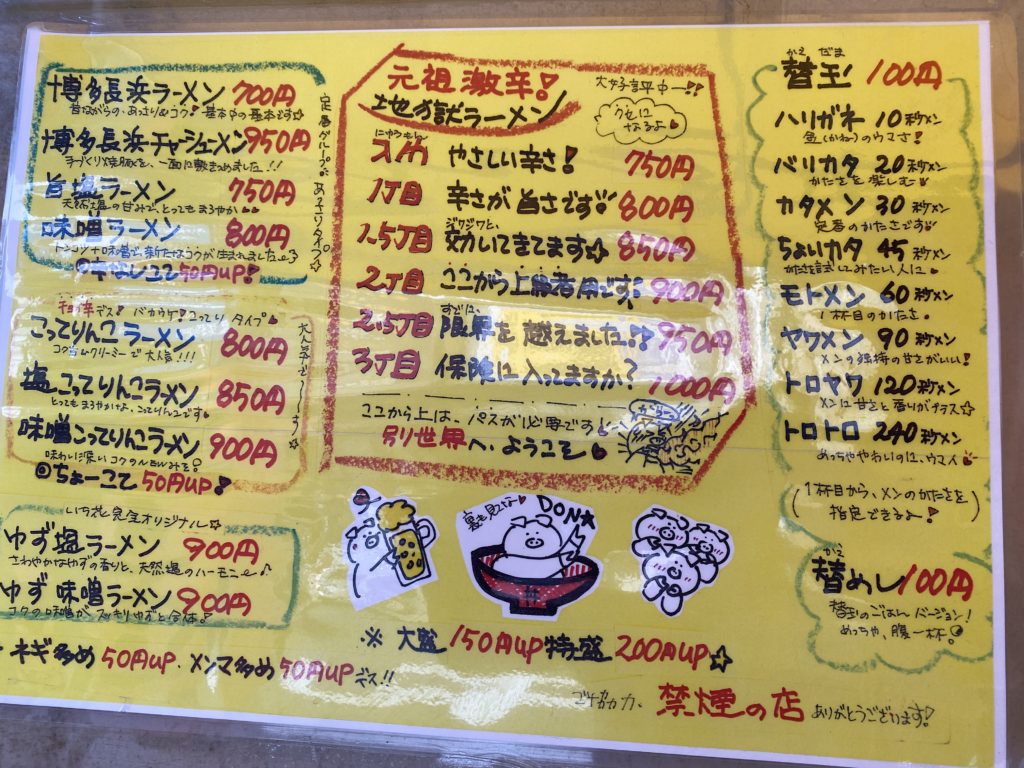 博多長浜ラーメン 700円
昔ながらの、あっさり&コク!基本中の基本です☆
博多長浜チャーシューメン 950円
手づくり焼豚を、一面に敷きつめました!!
旨塩ラーメン 750円
天然塩の甘みで、とってもまろやか
味噌ラーメン 800円
トンコツ+味噌で、新たなコクが生まれました
50円UP!
定番グループ♪あっさりタイプ☆
デス! バカウケ!コッテリタイプ
こってりんこラーメン 800円
コク旨クリーミーで大人気!!!
塩こってりんこラーメン 850円
とってもまろやかな、こってりんこです
味噌こってりんこラーメン 900円
味わい深いコクの
◎ちょーこて 50円UP!
オリジナル☆
ゆず塩ラーメン 900円
さわやかなゆずの香りと、天然塩のハーモニー♪
ゆず味噌ラーメン 900円
コクの味噌が、スッキリゆずと合体!
・ネギ多め 50円UP・メンマ多め 50円UPデス!!
元祖激辛!
地獄ラーメン
大好評中ー!!
クセになるよ♥
にゅうもん
入門 やさしい辛さ! 750円
1丁目 辛さが旨さです 800円
ジワジワと、
1.5丁目 効いてきてます☆ 850円
2丁目 ここから上級者用です! 900円
すでに、
2.5丁目 限界を越えました 950円
3丁目 保険に入ってますか? 1000円
ここから上は、パスが必要です
別世界へ、ようこそ♥
から〜
裏も見てネ♥
DON☆
※大盛 150円UP 特盛 200円UP☆
ご協力、禁煙の店 ありがとうございます!
かえ だま
替玉! 100円
ハリガネ 10秒メン
金(かね)のウマさ!
バリカタ 20秒メン
かたさを楽しむ
カタメン 30秒メン
定番のかたさです
ちょいカタ 45秒メン
かた麺試してみたい人に
モトメン 60秒メン
1杯目のかたさ。
ヤワメン 90秒メン
メンの独特の甘さがいい!
トロヤワ 120秒メン
メンに甘さと香りがプラス☆
トロトロ 240秒メン
めっちゃやわいのに、ウマイ
(1杯目から、メンのかたさを
指定できるよ!)
かえ
替めし 100円
替玉のごはんバージョン!
めっちゃ、腹一杯!